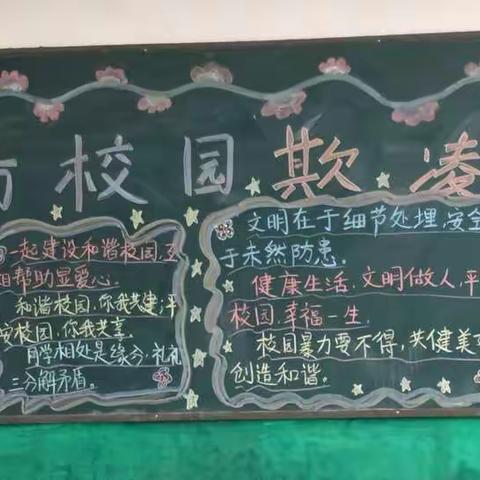 校园欺凌
一起建设和谐校园,互
相帮助显爱心.
和谐校园,你我共建;平
安校园,你我共享
同学相处是缘分.礼礼
三分解矛盾。
文明在于细节处理,安全
于未然防患.
健康生活,文明做人,平
校园,幸福一生.
校园暴力要不得,共健美
创造和谐。